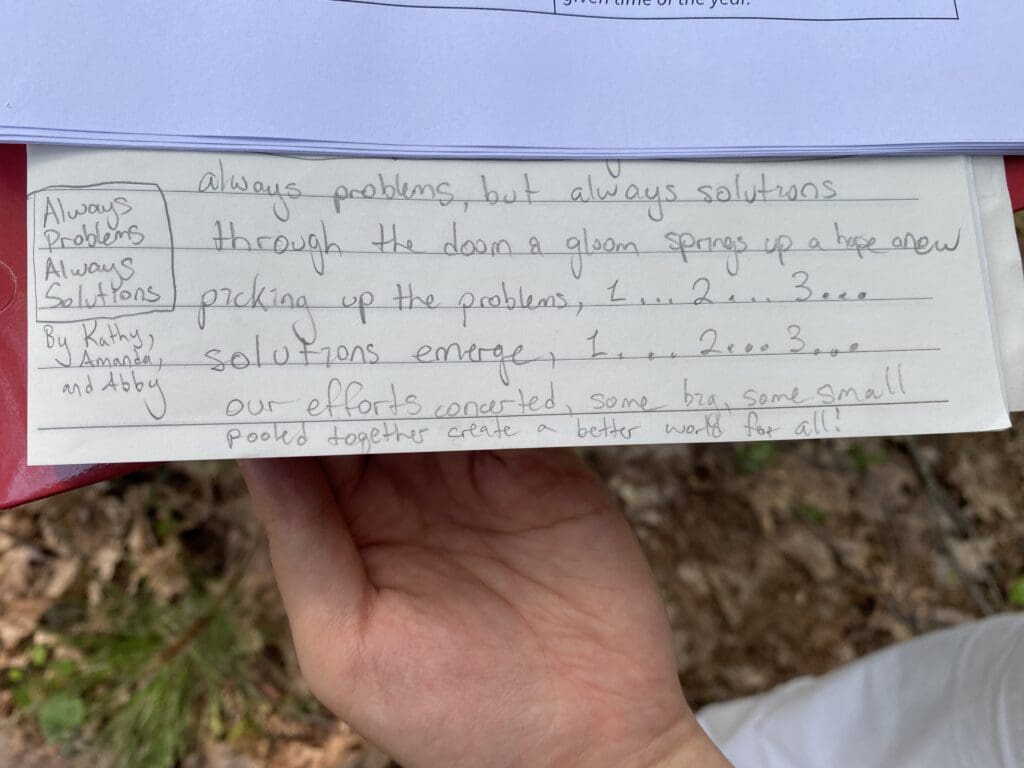 given time of the year.
Always
Problems
Always
Solutions
By Kathy,
Amanda,
and Abby
always problems, but always solutions
through the doom & gloom springs up a hope anew
picking up the problems, 1... 2... 3...
solutions emerge, 1.... 2... 3...
our efforts concerted, some big, some small
pooled together create a better world for all!